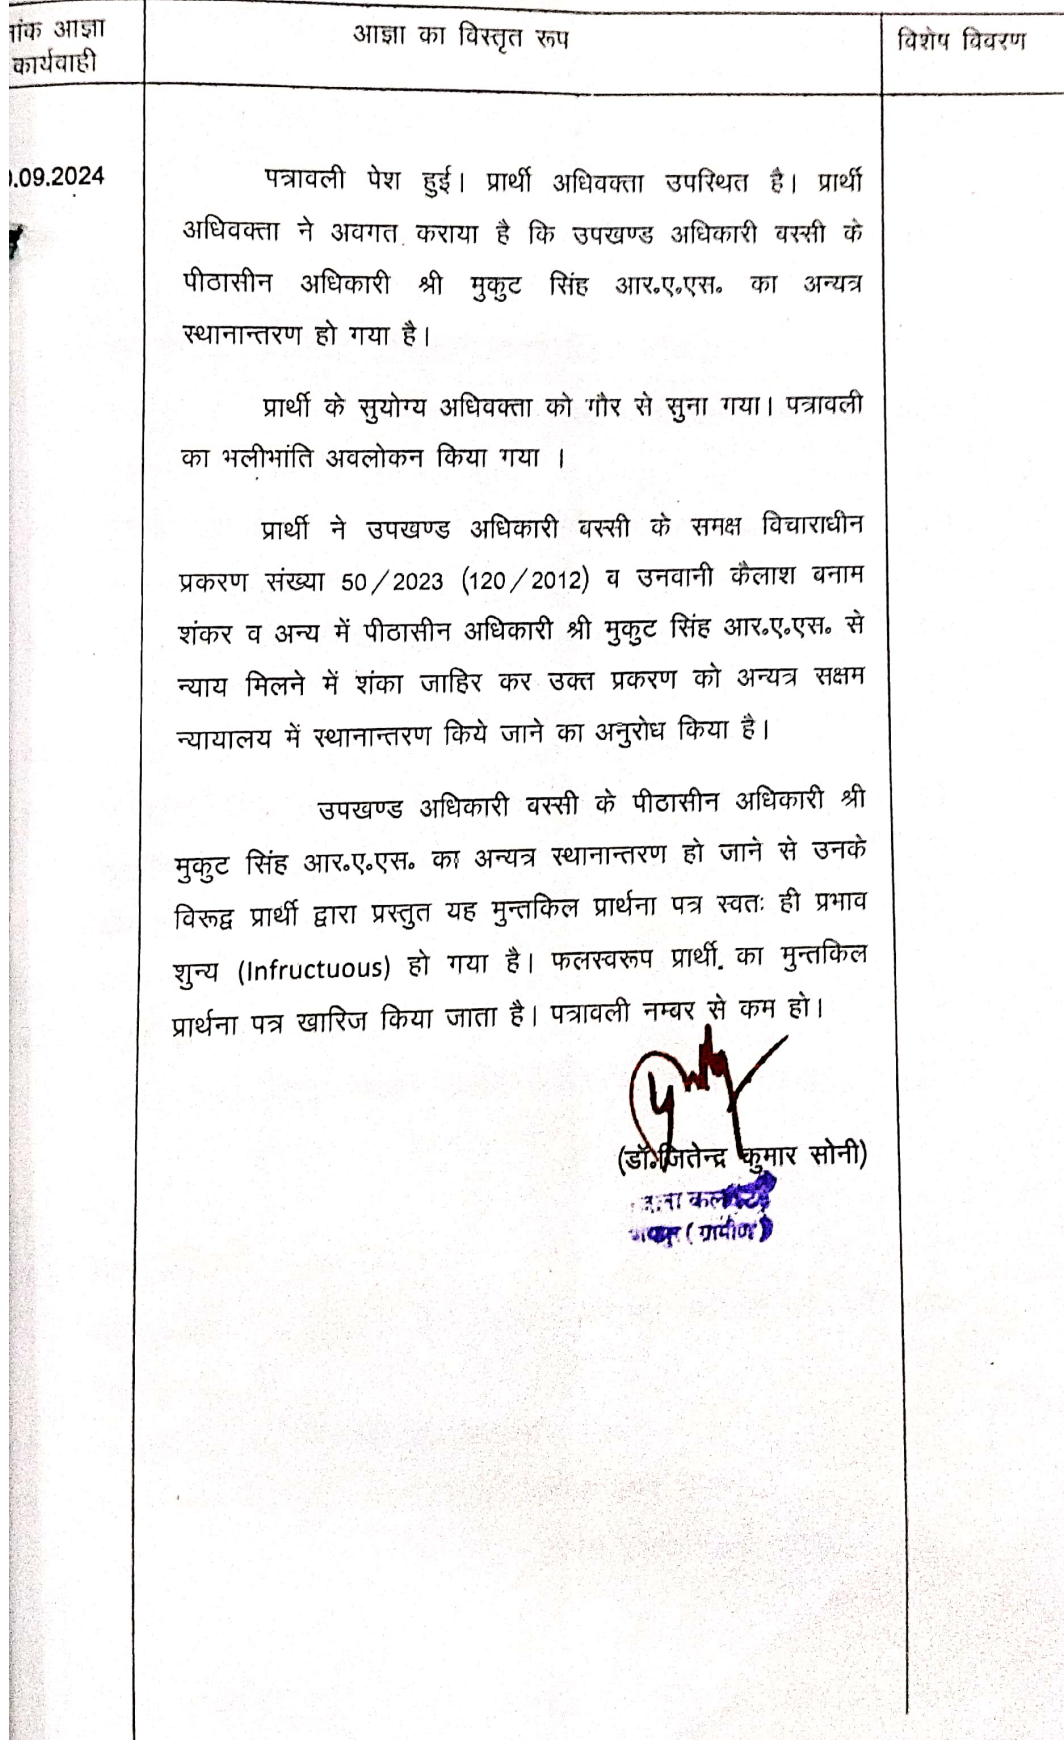 नांक आज्ञा
कार्यवाही
आज्ञा का विस्तृत रूप
विशेष विवरण
.09.2024
पत्रावली पेश हुई। प्रार्थी अधिवक्ता उपस्थित है। प्रार्थी
अधिवक्ता ने अवगत कराया है कि उपखण्ड अधिकारी बस्सी के
पीठासीन अधिकारी श्री मुकुट सिंह आर॰ए॰एस॰ का अन्यत्र
स्थानान्तरण हो गया है।
प्रार्थी के सुयोग्य अधिवक्ता को गौर से सुना गया। पत्रावली
का भलीभांति अवलोकन किया गया ।
प्रार्थी ने उपखण्ड अधिकारी बस्सी के समक्ष विचाराधीन
प्रकरण संख्या 50/2023 (120/2012) व उनवानी कैलाश बनाम
शंकर व अन्य में पीठासीन अधिकारी श्री मुकुट सिंह आर॰ए॰एस॰ से
न्याय मिलने में शंका जाहिर कर उक्त प्रकरण को अन्यत्र सक्षम
न्यायालय में स्थानान्तरण किये जाने का अनुरोध किया है।
उपखण्ड अधिकारी बस्सी के पीठासीन अधिकारी श्री
मुकुट सिंह आर॰ए॰एस॰ का अन्यत्र स्थानान्तरण हो जाने से उनके
विरूद्व प्रार्थी द्वारा प्रस्तुत यह मुन्तकिल प्रार्थना पत्र स्वतः ही प्रभाव
शुन्य (Infructuous) हो गया है। फलस्वरूप प्रार्थी का मुन्तकिल
प्रार्थना पत्र खारिज किया जाता है। पत्रावली नम्बर से कम हो।
(डॉ॰जितेन्द्र कुमार सोनी)
(ग्रामीण)